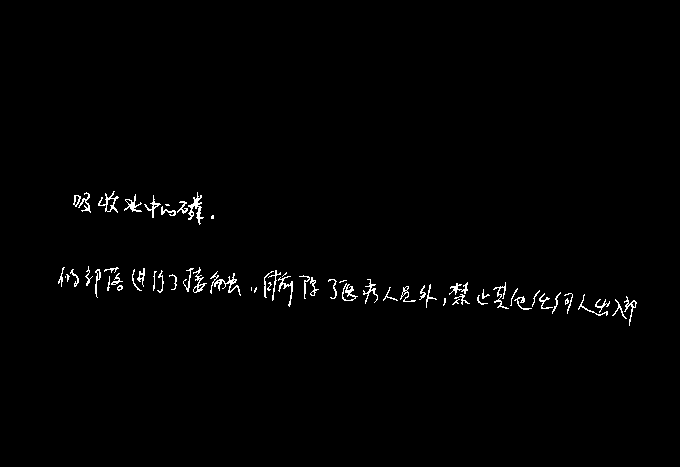 吸收水中的磷.
的部落进行了接触.,目前除了医疗人员外,禁止其他任何人出入部